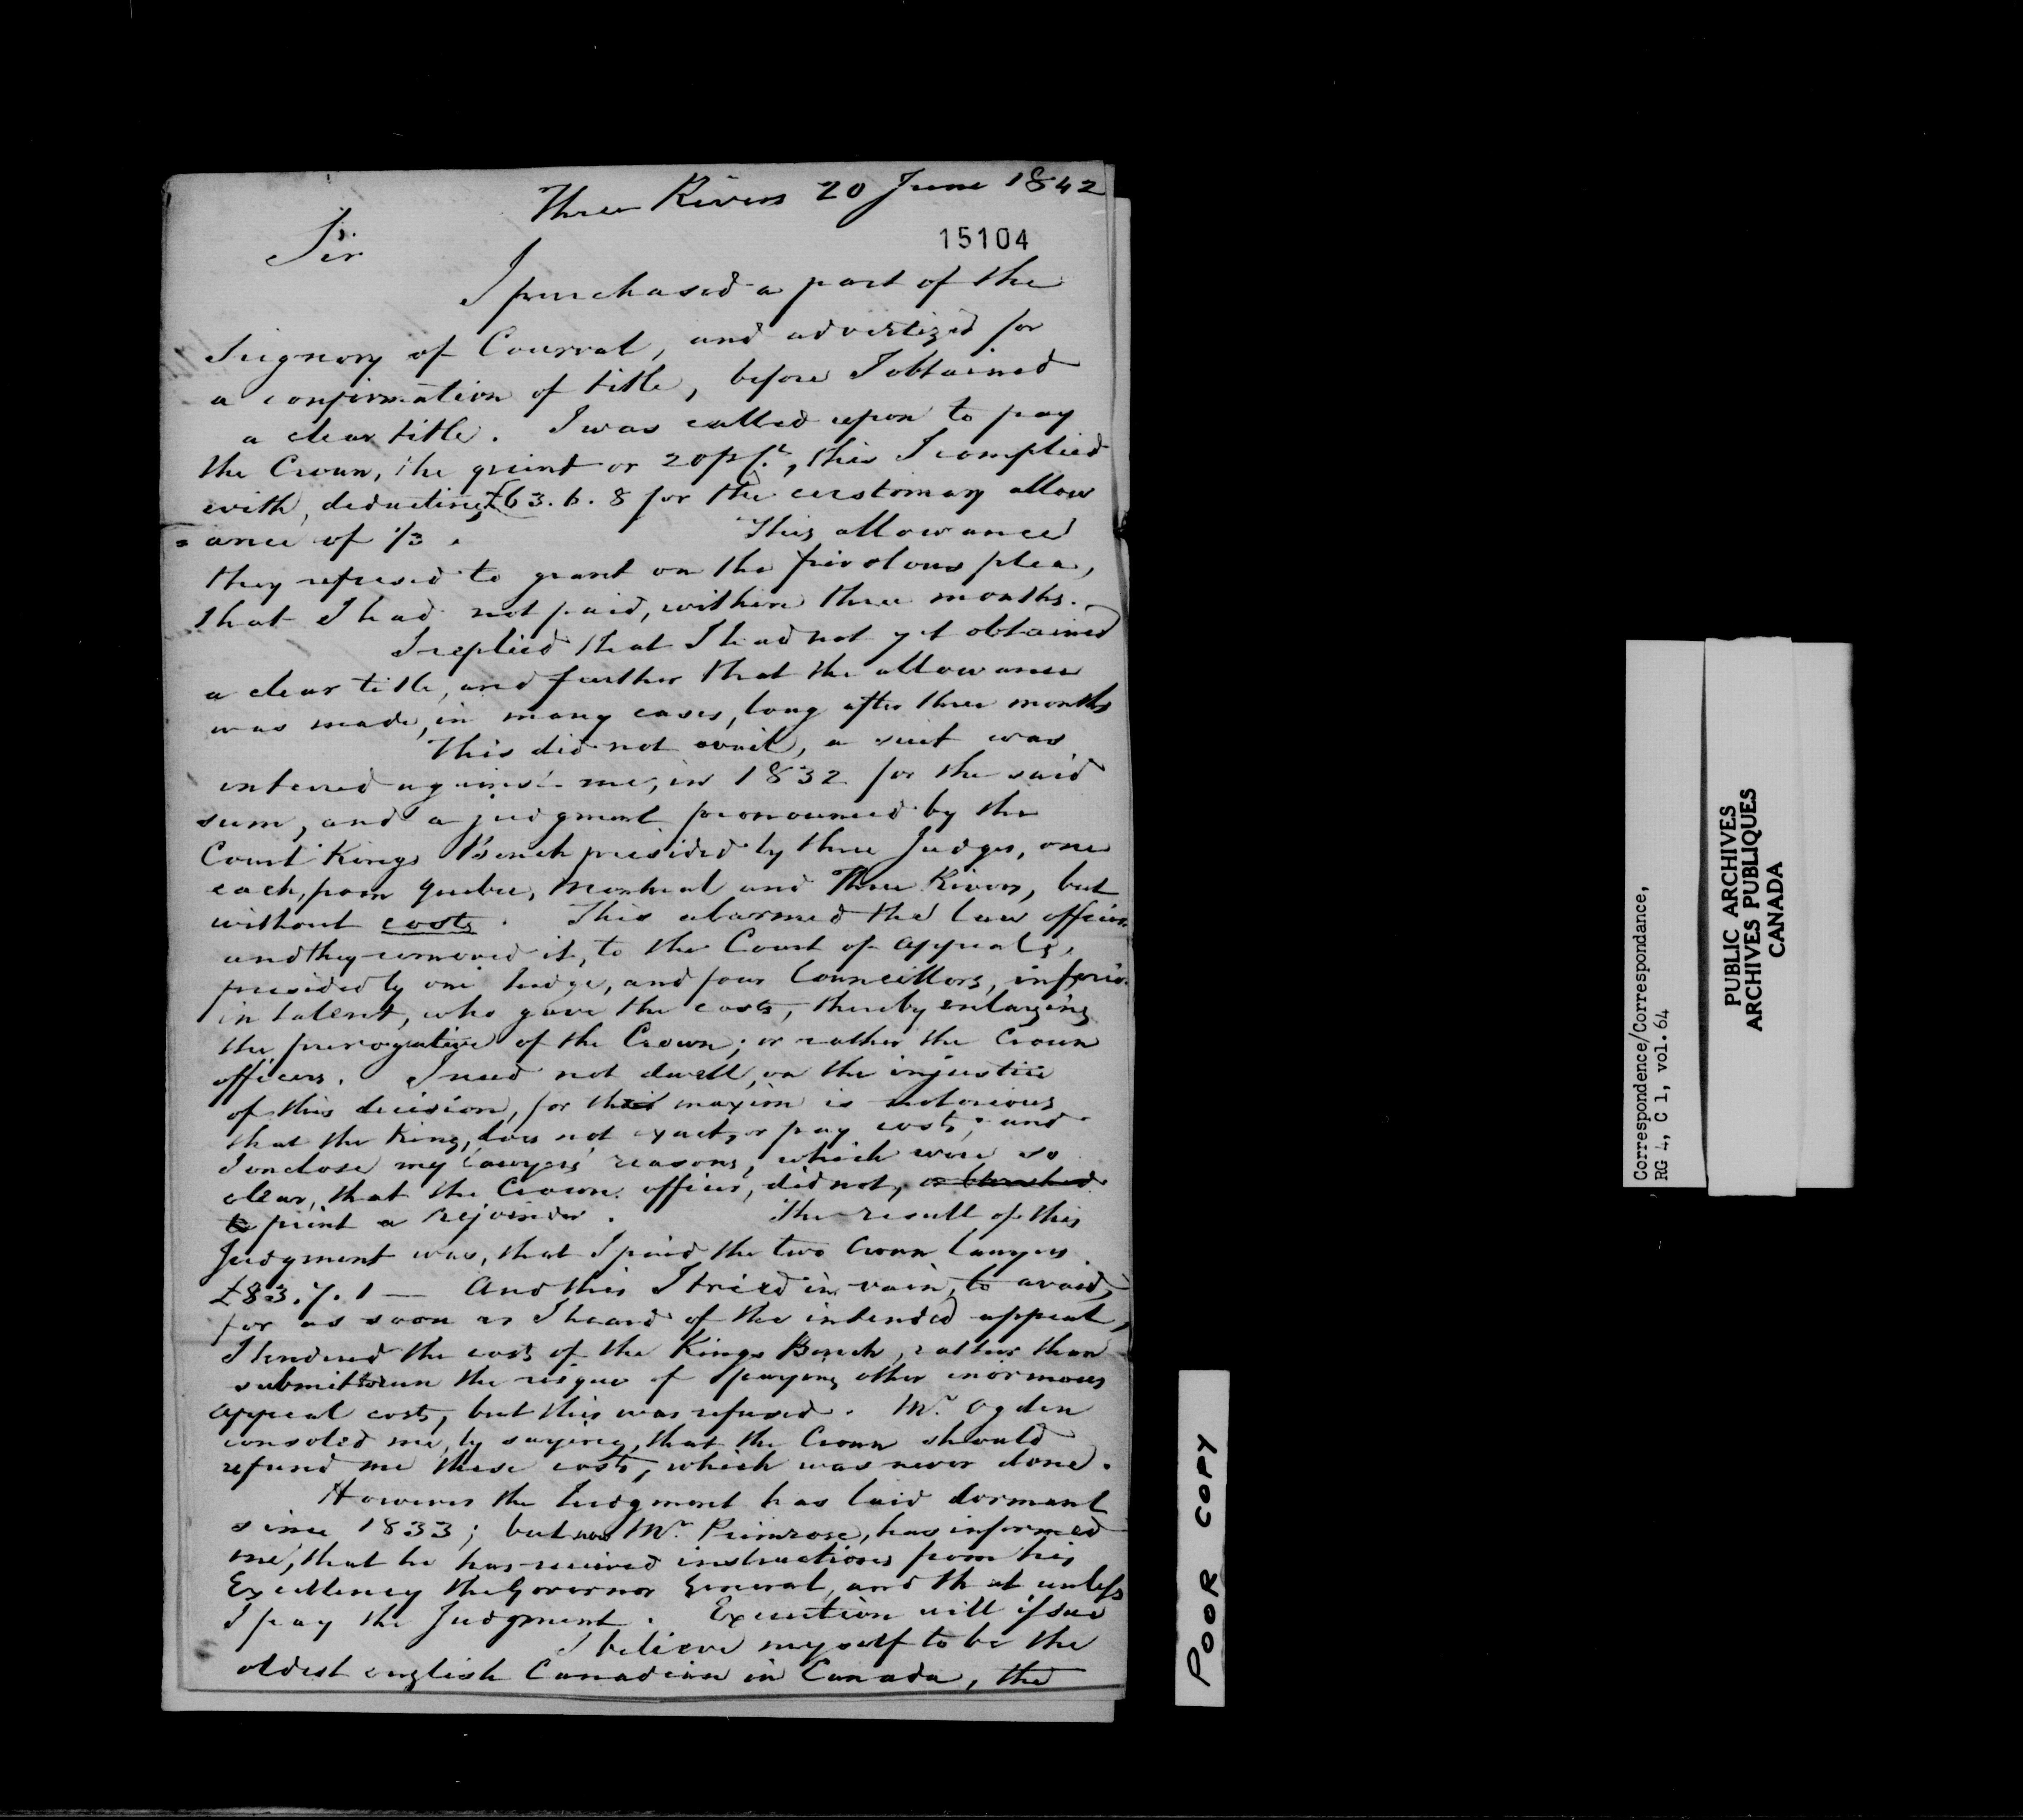 Three Rivers 20 June 1842
15104
Sir
I purchased a part of the
Seignory of Courval, and advertized for
a confirmation of title, before I obtained
a clear title. I was called upon to pay
the Crown, the quint or 20 p Ct, this I complied
with, deducting £63.6.8 for the customary allow
=ance of 1/3. This allowance
they refused to grant on the frivolous plea,
that I had not paid, within three months.
I replied that I had not yet obtained
a clear title, and further that the allowance
was made, in many cases, long after three months
This did not avail, a suit was
entered against me, in 1832 for the said
sum, and a judgment pronounced by the
Court Kings Bench presided by three Judges, one
each, from Quebec, Montreal and Three Rivers, but
without costs. This alarmed the law officers
and they removed it, to the Court of Appeals,
presided by one Judge, and four Councillors, inferior
in talent, who gave the costs, thereby enlarging
the prerogative of the Crown; or rather the Crown
officers. I need not dwell, on the injustice
of this decision, for the maxim is notorious
that the King, does not exact, or pay costs; and
I enclose my Lawyers reasons, which were so
clear, that the Crown officers, did not,
print a Rejoinder. The result of this
Judgment was, that I paid the two Crown Lawyers
£83.7.1 — And this I tried in vain, to avoid,
for as soon as I heard of the intended appeal,
I tendered the costs of the Kings Bench, rather than
run the risque of paying other enormous
appeal costs, but this was refused. Mr. Ogden
consoled me, by saying, that the Crown should
refund me these costs, which was never done.
However the Judgment has laid dormant
since 1833; but now Mr. Primrose, has informed
me, that he has received instructions from his
Excellency the Governor General, and that unless
I pay the Judgment. Execution will issue
I believe myself to be the
oldest english Canadian in Canada, the
POOR COPY
Correspondence/Correspondance,
RG 4, C 1, vol. 64
PUBLIC ARCHIVES
ARCHIVES PUBLIQUES
CANADA